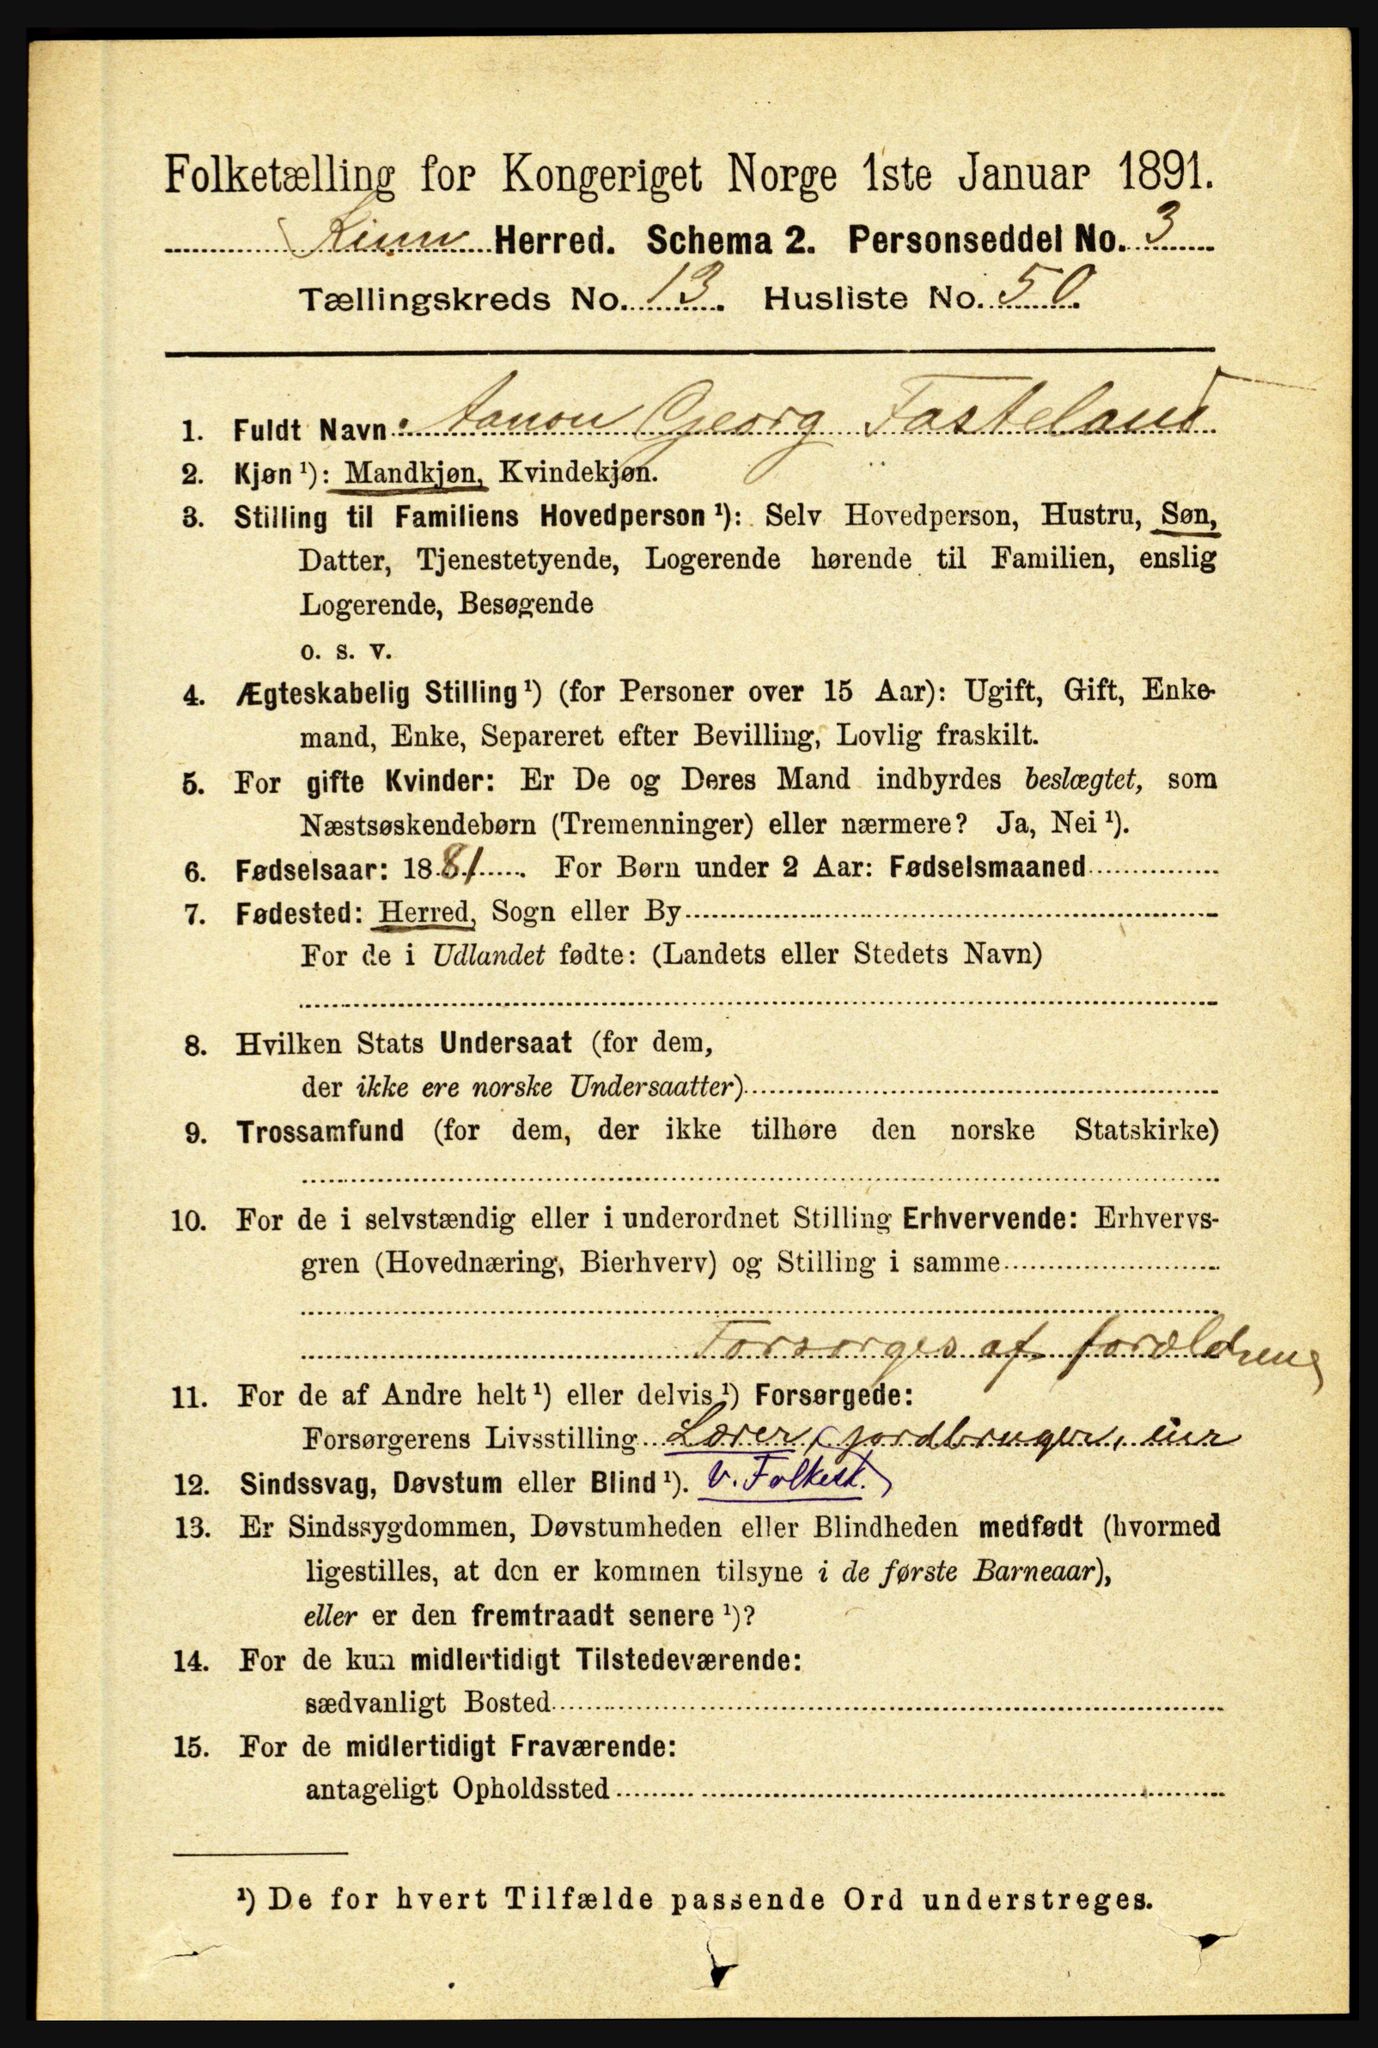 Folketælling for Kongeriget Norge 1ste Januar 1891.
Kinn Herred. Schema 2. Personseddel No. 3
Tællingskreds No. 13. Husliste No. 50.
1. Fuldt Navn Aanon Georg Fasteland
2. Kjøn ¹): Mandkjøn, Kvindekjøn.
3. Stilling til Familiens Hovedperson ¹): Selv Hovedperson, Hustru, Søn,
Datter, Tjenestetyende, Logerende hørende til Familien, enslig
Logerende, Besøgende
o. s. v.
4. Ægteskabelig Stilling ¹) (for Personer over 15 Aar): Ugift, Gift, Enke-
mand, Enke, Separeret efter Bevilling, Lovlig fraskilt.
5. For gifte Kvinder: Er De og Deres Mand indbyrdes beslægtet, som
Næstsøskendebørn (Tremenninger) eller nærmere? Ja, Nei ¹).
6. Fødselsaar: 1881. For Børn under 2 Aar: Fødselsmaaned
7. Fødested: Herred, Sogn eller By
For de i Udlandet fødte: (Landets eller Stedets Navn)
8. Hvilken Stats Undersaat (for dem,
der ikke ere norske Undersaatter)
9. Trossamfund (for dem, der ikke tilhøre den norske Statskirke)
10. For de i selvstændig eller i underordnet Stilling Erhvervende: Erhvervs-
gren (Hovednæring, Bierhverv) og Stilling i samme
Forsørges af forældrene
11. For de af Andre helt ¹) eller delvis ¹) Forsørgede:
Forsørgerens Livsstilling Lærer, jordbruger,
12. Sindssvag, Døvstum eller Blind ¹). v. Folkesk.
13. Er Sindssygdommen, Døvstumheden eller Blindheden medfødt (hvormed
ligestilles, at den er kommen tilsyne i de første Barneaar),
eller er den fremtraadt senere ¹)?
14. For de kun midlertidigt Tilstedeværende:
sædvanligt Bosted
15. For de midlertidigt Fraværende:
antageligt Opholdssted
¹) De for hvert Tilfælde passende Ord understreges.